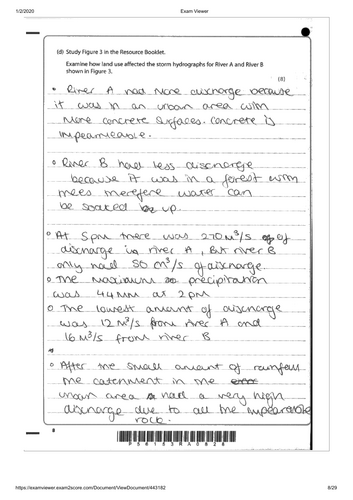 1/2/2020
Exam Viewer
(d) Study Figure 3 in the Resource Booklet.
Examine how land use affected the storm hydrographs for River A and River B
shown in Figure 3.
(8)
• River A had More discharge because
it was in an urban area with
More concrete surfaces. Concrete is
impermeable.
• River B had less discharge
because it was in a forest with
trees therefore water can
be soaked up.
• At 5pm there was 270 M³/s of
discharge in river A, But river B
only had 50 m³/s of discharge.
• The Maximum precipitation
was 44mm at 2pm
• The lowest amount of discharge
was 12 M³/s from river A and
16 M³/s from river B
• After the small amount of rainfall
the catchment in the
urban area had a very high
discharge due to all the impearable
rock.
8
P 5 6 1 5 3 R A 0 8 2 8
https://examviewer.exam2score.com/Document/ViewDocument/443182
8/29